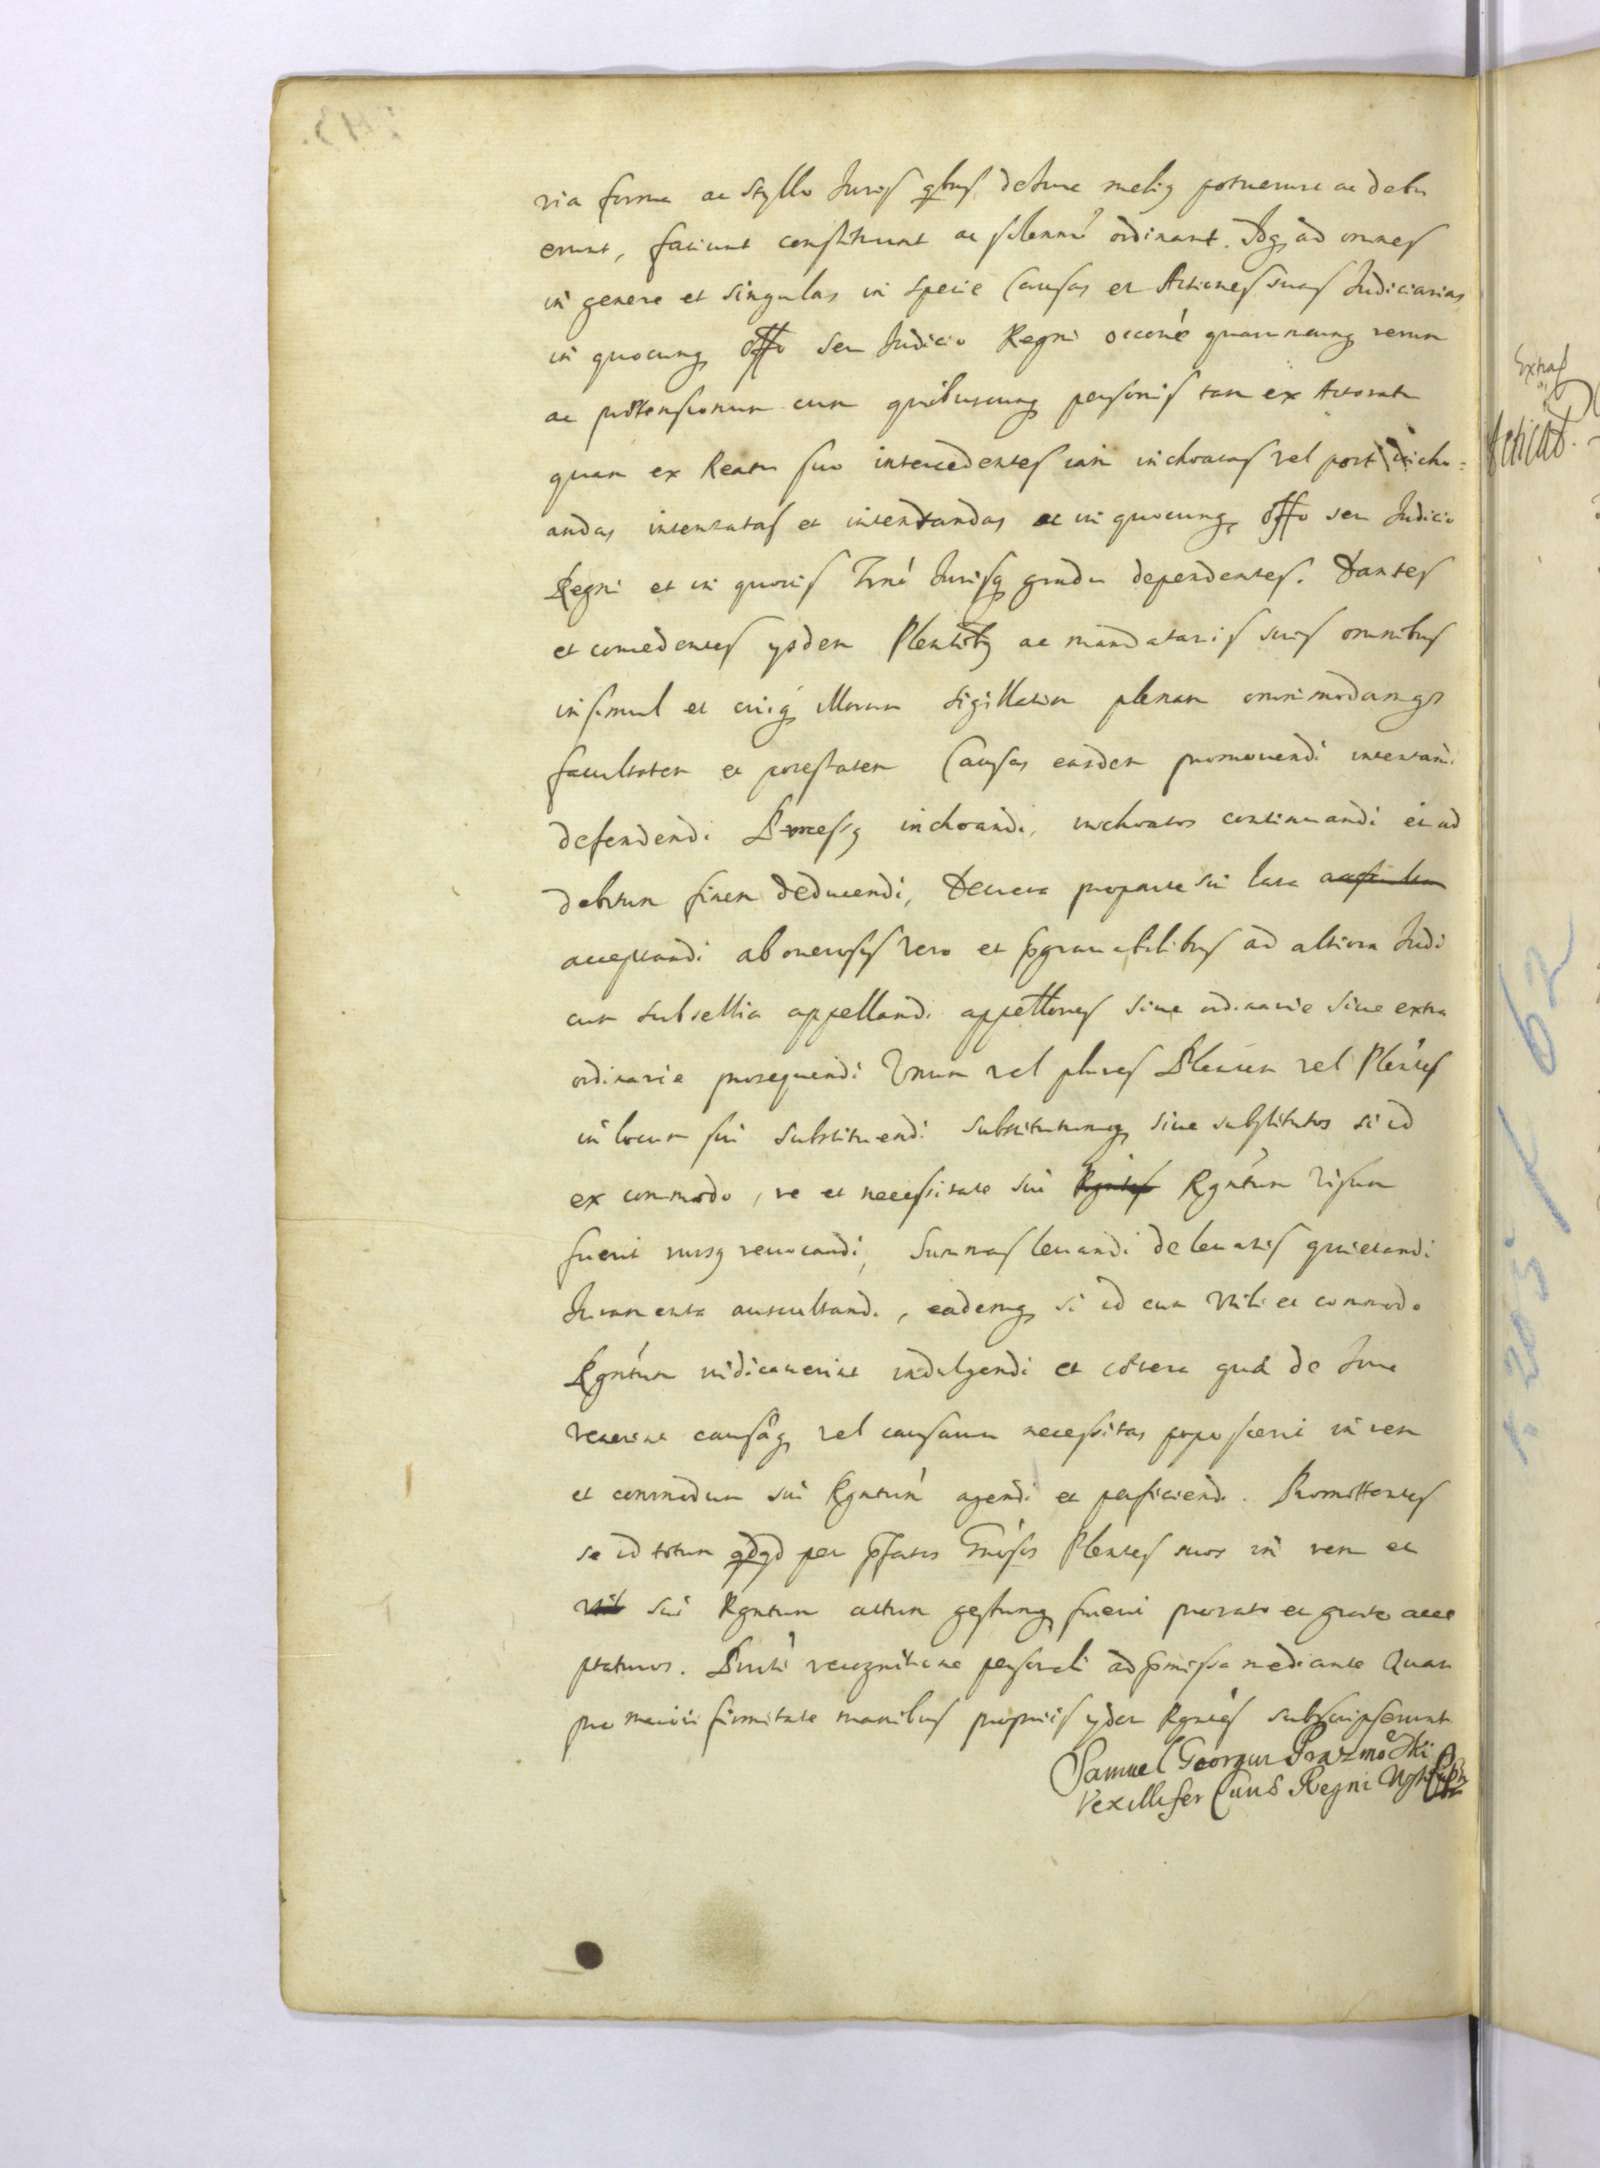 ria forma ac Stylo Juris qbus de Jure melig potuerunt ac debu
erunt, faciunt constituunt ac solenni ordinant. Idq ad omnes
in genere et singulas in specie Causas et Actiones suas Judiciarias
in quocunq Offo seu Judicio Regni occone quarumcunq rerum
ac prætensionum cum quibuscunq personis tam ex Actoratu
quam ex Reatu suo intercedentes iam inchoatas vel post incho=
andas intentatas et intentandas ac in quocunq Offo seu Judicio
Regni et in quovis Trni Jurisq gradu dependentes. Dantes
et concedentes ysdem Plentibq ac mandatariis suis omnibus
insimul et cuiq illorum sigillatim plenam omnimodamq
facultatem et potestatem Causas easdem promovendi intentandi
defendendi Processq inchoandi, inchoatos continuandi et ad
debitum finem deducendi, Decreta pro parte sui lata
acceptandi ab onerosis vero et pgravabilibus ad altiora Judi
cum subsellia appellandi appellones sive ordinarie sive extra
ordinarie prosequendi Unum vel plures Plentem vel Plentes
in locum sui substituendi substitutumq sive substitutos si id
ex commodo, re et necessitate sui Rgntum visum
fuerit rursq revocandi, Summas levandi de levatis quietandi
Juramenta auscultandi, eademq si id cum utili et commodo
Rgntum iudicaverint indulgendi et cætera quæ de Jure
venerint causæq vel causarum necessitas poposcerit in rem
et commodum sui Rgntum agendi et perficiendi. Promittentes
se id totum qdqd per pfatos Gnosos Plentes suos in rem et
sui Rgntum actum gestumq fuerit pro rato et grato acce
ptaturos. recognitione personali ad pmissa mediante Quam
pro maiori firmitate manibus propriis ydem Rgntes subscripserunt
Samuel Georgius Prazmowski
Vexillifer Curiæ Regni
Extrad